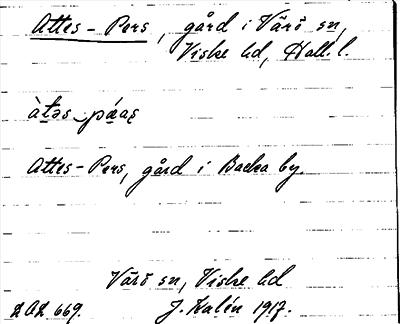 Attes-Pers, gård i Värö sn,
Viske hd, Hall. l.
àtəs-pǽas
Attes-Pers, gård i Backa by.
Värö sn, Viske hd
ZAZ 669. J. Kalén 1917.